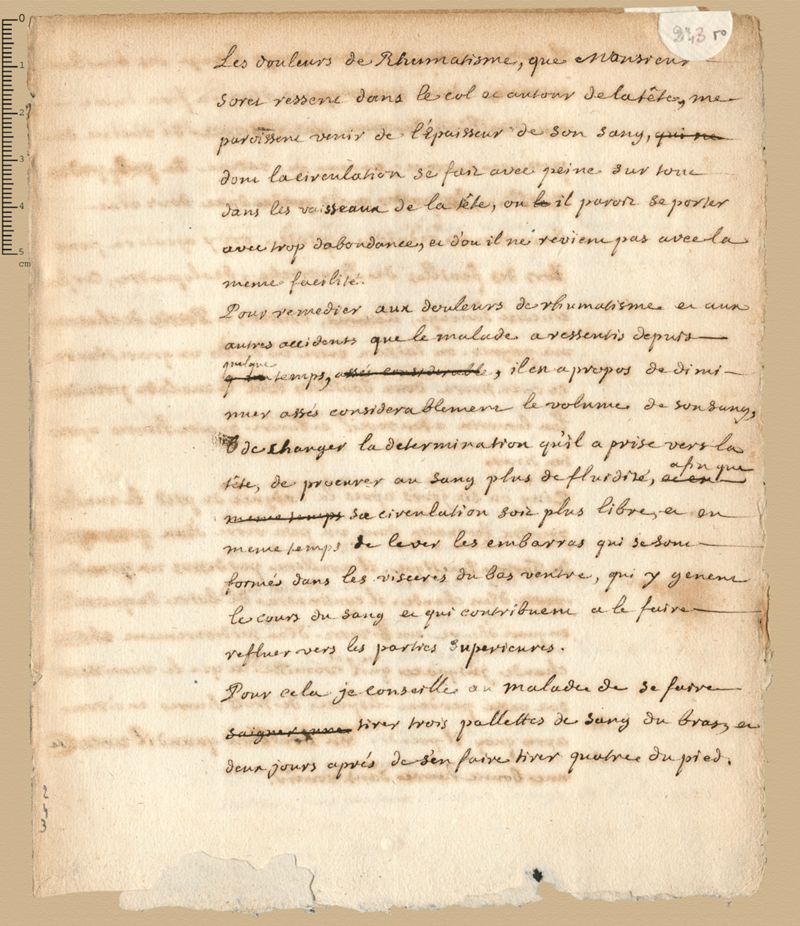 243 ro
Les douleurs de Rhumatisme, que Monsieur
Soret ressent dans le col et autour de la tête, me
paroissent venir de l'Epaisseur de son sang, qui ne
dont la circulation se fait avec peine sur tout
dans les vaisseaux de la tête, ou le il paroit se porter
avec trop dabondance, et d'ou il ne revient pas avec la
meme facilité.
Pour remedier aux douleurs de rhumatisme et aux
autres accidents que le malade a ressentis depuis
quelque
temps, assés considerable, il est a propos de dimi-
nuer assés considerablement le volume de son sang,
de changer la determination qu'il a prise vers la
afin que
tête, de procurer au sang plus de fluidité, et en
meme temps sa circulation soit plus libre, et en
meme temps de lever les embarras qui se sont
formés dans les visceres du bas ventre, qui y genent
le cours du sang et qui contribuent a le faire
refluer vers les parties superieures.
Pour cela je conseille au malade de se faire
saigner tirer trois pallettes de sang du bras, et
deux jours aprés de s'en faire tirer quatre du pied.
243
0
1
2
3
4
5
cm